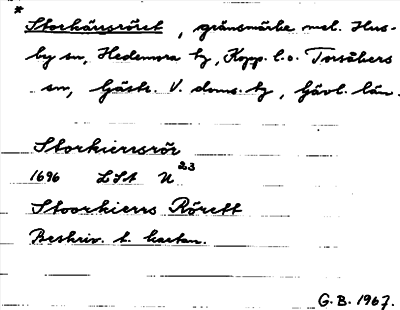 *
Storkärrsröret, gränsmärke mel. Hus-
by sn, Hedemora tg, Kopp. l. o. Torsåkers
sn, Gästr. V. doms. tg, Gävl. län.
Storkierrsrör
1696 LSt U 23
Stoorkierrs Rörett
Beskriv. t. kartan.
G. B. 1967.